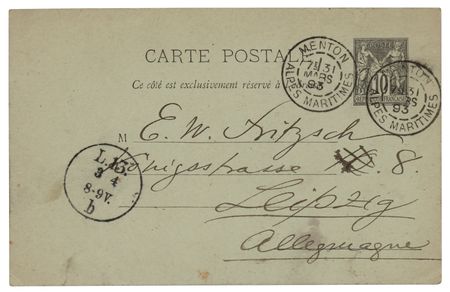 CARTE POSTALE
Ce côté est exclusivement réservé à
MENTON
7E 31
MARS
93
ALPES MARITIMES
10
31
MARS
93
ALPES MARITIMES
M E. W. Fritzsch
Königsstrasse 8.
Leipzig
Allemagne
L. 13.
3 4
8-9V.
b